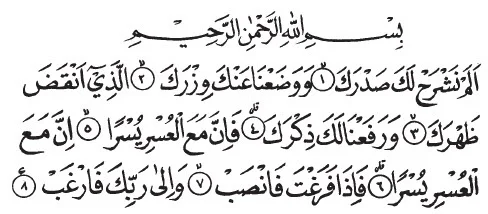 بِسْمِ اللهِ الرَّحْمٰنِ الرَّحِيْمِ
اَلَمْ نَشْرَحْ لَكَ صَدْرَكَ ۙ﴿١﴾ وَوَضَعْنَا عَنْكَ وِزْرَكَ ۙ﴿٢﴾ الَّذِيْٓ اَنْقَضَ
ظَهْرَكَ ۙ﴿٣﴾ وَرَفَعْنَا لَكَ ذِكْرَكَ ۗ﴿٤﴾ فَاِنَّ مَعَ الْعُسْرِ يُسْرًا ۙ﴿٥﴾ اِنَّ مَعَ
الْعُسْرِ يُسْرًا ۗ﴿٦﴾ فَاِذَا فَرَغْتَ فَانْصَبْ ۙ﴿٧﴾ وَاِلٰى رَبِّكَ فَارْغَبْ ࣖ﴿٨﴾